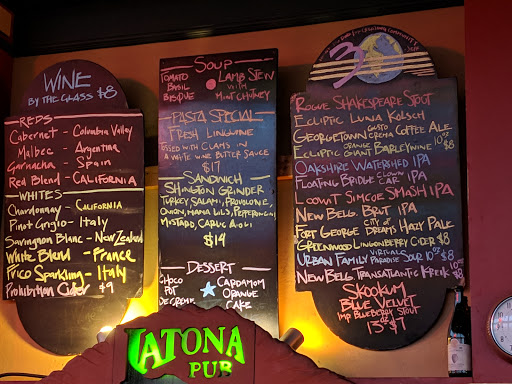 WINE
BY THE GLASS $8
REDS
Cabernet - Columbia Valley
Malbec - Argentina
Garnacha - Spain
Red Blend - CALIFORNIA
WHITES
Chardonnay - CALIFORNIA
Pinot Grigio - Italy
Sauvignon Blanc - New Zealand
White Blend - France
Frico Sparkling - Italy
Prohibition Cider $9
SOUP
TOMATO BASIL BISQUE
LAMB STEW WITH MINT CHUTNEY
PASTA SPECIAL
FRESH LINGUINE
TOSSED WITH CLAMS IN
A WHITE WINE BUTTER SAUCE
$17
SANDWICH
SHINGTON GRINDER
TURKEY, SALAMI, PROVOLONE,
ONION, MAMA LIL'S, PEPPERONCINI
MUSTARD, GARLIC AIOLI
$14
DESSERT
CHOCO POT DE CREME
CARDAMOM ORANGE CAKE
30
ROGUE SHAKESPEARE STOUT
ECLIPTIC LUNA KOLSCH
GEORGETOWN GUSTO CREMA COFFEE ALE
ECLIPTIC ORANGE GIANT BARLEYWINE 10oz $8
OAKSHIRE WATERSHED IPA
FLOATING BRIDGE CLOWN CAR IPA
LOOWIT SIMCOE SMASH IPA
NEW BELG. BRUT IPA
FORT GEORGE CITY OF DREAMS HAZY PALE
GREENWOOD LINGONBERRY CIDER $8
URBAN FAMILY VIRTUAL PARADISE SOUR 10oz $8
NEW BELG TRANSATLANTIC KRIEK $8
SKOOKUM
BLUE VELVET
IMP BLUEBERRY STOUT
13oz $7
LATONA
PUB